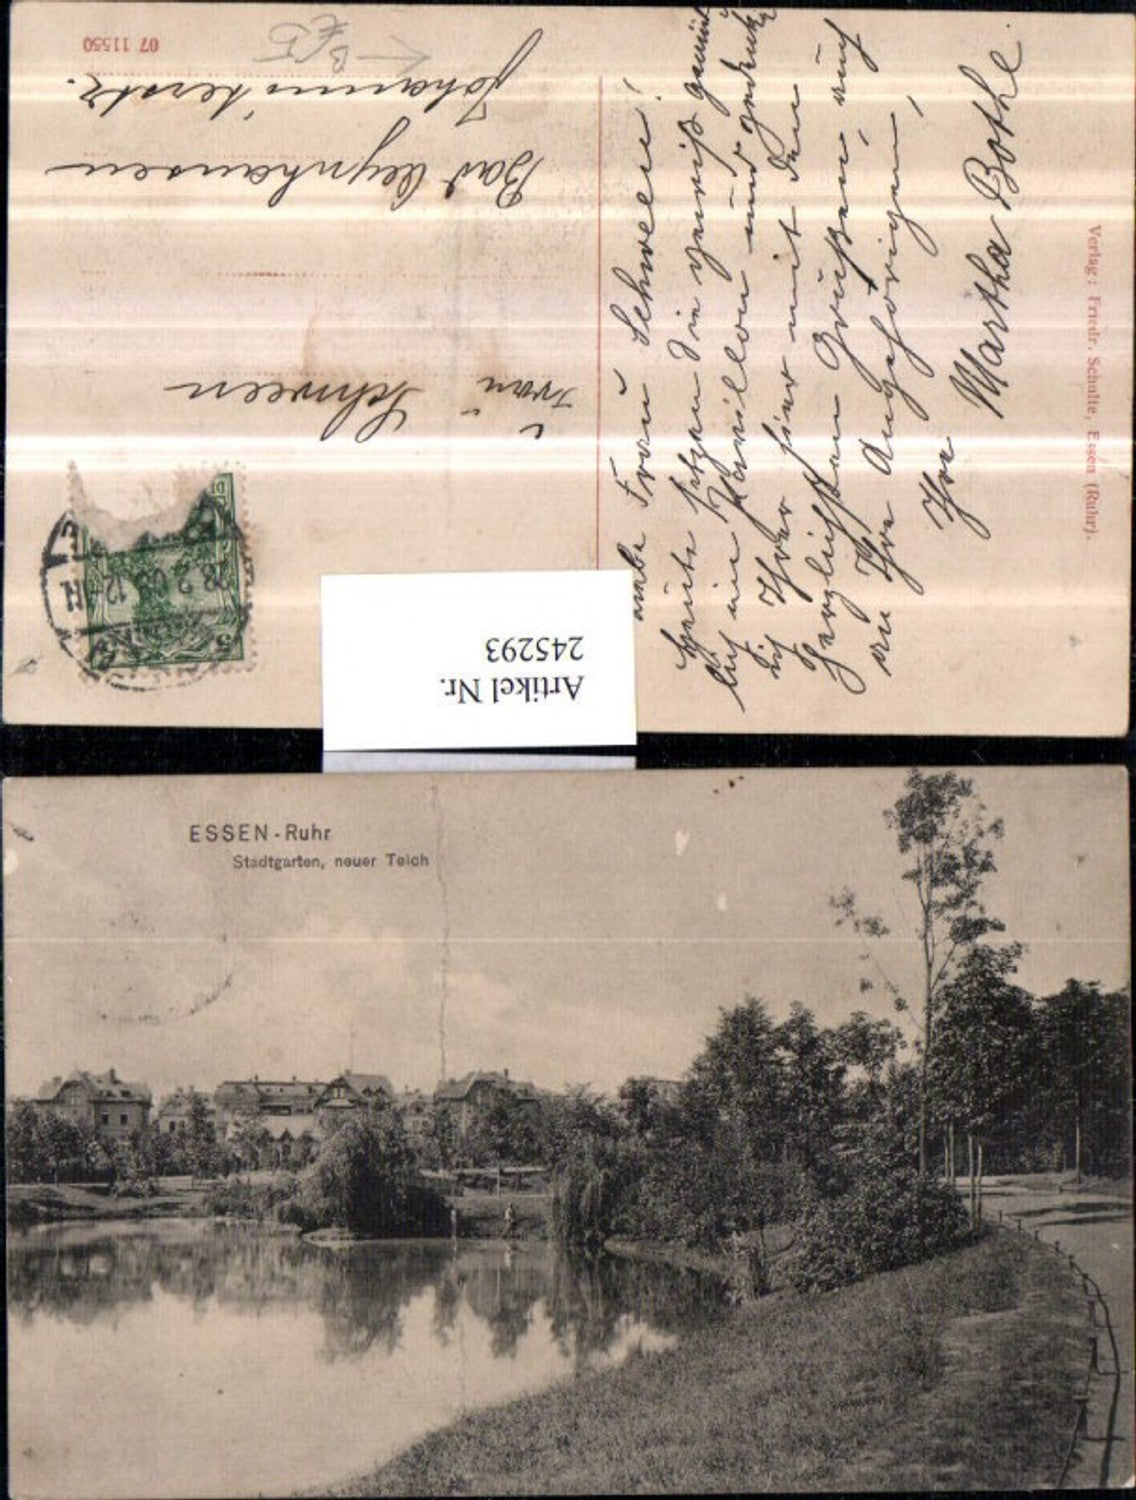 07 11550
Frau
Schween
Bad Oeynhausen
Johanniterstr.
Liebe Frau Schween!
Heute sitzen Sie gewiß gemüt-
lich im Pavillon und gedenke
ich Ihrer hier mit den
herzlichsten Grüßen, auch
an Ihre Angehörigen,
Ihre
Martha Bothe.
Verlag: Friedr. Schulte, Essen (Ruhr).
5
Artikel Nr.
245293
ESSEN-Ruhr
Stadtgarten, neuer Teich